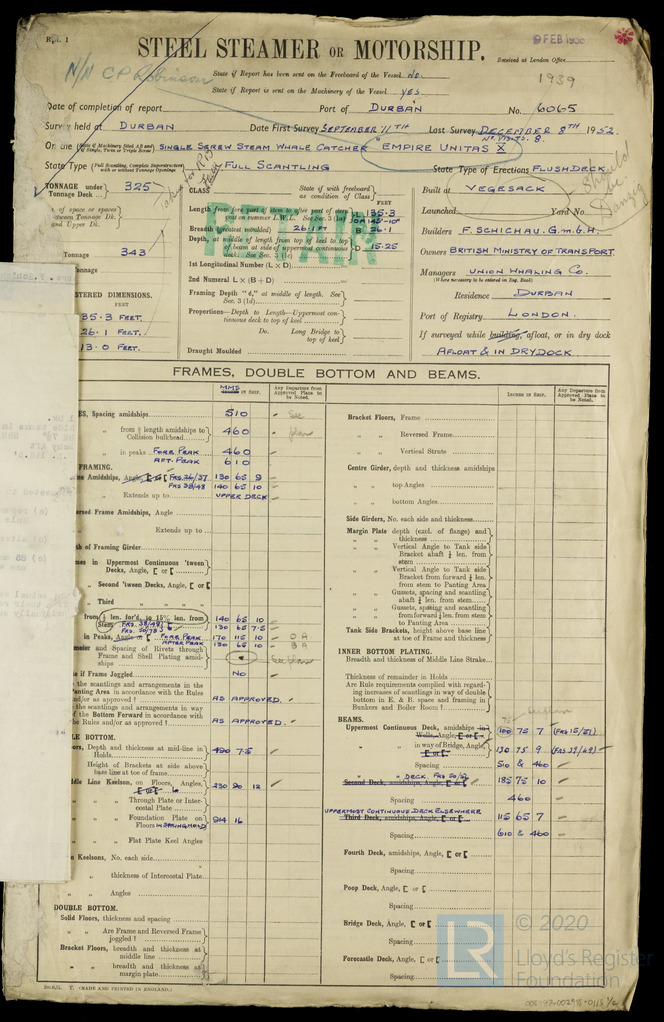 Rpt. 1
9 FEB 1953
STEEL STEAMER OR MOTORSHIP.
Received at London Office
N/N C P Robinson
State if Report has been sent on the Freeboard of the Vessel No.
1939
State if Report is sent on the Machinery of the Vessel YES
Date of completion of report Port of DURBAN No. 6065
Survey held at DURBAN Date First Survey SEPTEMBER 11TH Last Survey DECEMBER 8TH 1952
No. VISITS. 8.
On the SINGLE SCREW STEAM WHALE CATCHER "EMPIRE UNITAS X"
State Type (Full Scantling, Complete Superstructure with or without Tonnage Openings) FULL SCANTLING State Type of Erections FLUSH DECK
TONNAGE under Tonnage Deck 325
CLASS State if with freeboard as condition of Class
Built at VEGESACK
Should be Danzig
of space or spaces between Tonnage Dk. and Upper Dk.
FEET
L 135.3
Launched Yard No.
Breadth (greatest moulded) 26.1 FT B 26.1
Builders F. SCHICHAU. G.m.G.H.
RETAIN
D 15.25
Tonnage 343
Owners BRITISH MINISTRY OF TRANSPORT
1st Longitudinal Number (L × D)
Managers UNION WHALING Co.
2nd Numeral L × (B + D)
(Where necessary to be entered in Reg. Book)
STERED DIMENSIONS.
Framing Depth "d," at middle of length. See Sec. 3 (1d)
Residence DURBAN
FEET
35.3 FEET.
Proportions—Depth to Length—Uppermost continuous deck to top of keel
Port of Registry LONDON.
26.1 FEET.
Do. Long Bridge to top of keel
If surveyed while building, afloat, or in dry dock
13.0 FEET.
Draught Moulded
AFLOAT & IN DRYDOCK
FRAMES, DOUBLE BOTTOM AND BEAMS.
MMS
INCHES IN SHIP.
Any Departure from Approved Plans to be Noted.
ES, Spacing amidships 510 See
" from ⅕ length amidships to Collision bulkhead 460 plan
" in peaks FORE PEAK 460
AFT. PEAK 610
FRAMING.
me Amidships, Angle, FRS 26/37 130 65 9
FRS 38/48 140 65 10
" Extends up to UPPER DECK
ersed Frame Amidships, Angle
" Extends up to
th of Framing Girder
mes in Uppermost Continuous 'tween Decks, Angle, [ or [
" Second 'tween Decks, Angle, [ or [
" Third "
from ⅕ len. for'd. to 15% len. from Stem FRS 38/49 140 65 10
FRS 50/73 130 65 7.5
in Peaks, Angle or [ FORE PEAK 170 115 10 O A
AFTER PEAK 130 65 10 B A
meter and Spacing of Rivets through Frame and Shell Plating amidships See plans
e if Frame Joggled NO
the scantlings and arrangements in the Panting Area in accordance with the Rules and/or as approved ? AS APPROVED.
the scantlings and arrangements in way of the Bottom Forward in accordance with the Rules and/or as approved ? AS APPROVED.
LE BOTTOM.
ors, Depth and thickness at mid-line in Holds 7.5
" Height of Brackets at side above base line at toe of frame
ddle Line Keelson, on Floors, Angles, [ or [ 230 90 12
" " Through Plate or Intercostal Plate
" " Foundation Plate on Floors 914 16
" " Flat Plate Keel Angles
Keelsons, No. each side
" thickness of Intercostal Plate
" Angles
DOUBLE BOTTOM.
Solid Floors, thickness and spacing
" " Are Frame and Reversed Frame joggled ?
Bracket Floors, breadth and thickness at middle line
" " breadth and thickness at margin plate
INCHES IN SHIP.
Any Departure from Approved Plans to be Noted.
Bracket Floors, Frame
" " Reversed Frame
" " Vertical Struts
Centre Girder, depth and thickness amidships
" " top Angles
" " bottom Angles
Side Girders, No. each side and thickness
Margin Plate depth (excl. of flange) and thickness
" " Vertical Angle to Tank side Bracket abaft ¼ len. from stem
" " Vertical Angle to Tank side Bracket from forward ¼ len. from stem to Panting Area
" " Gussets, spacing and scantling abaft ¼ len. from stem
" " Gussets, spacing and scantling from forward ¼ len. from stem to Panting Area
Tank Side Brackets, height above base line at toe of Frame and thickness
INNER BOTTOM PLATING.
Breadth and thickness of Middle Line Strake
Thickness of remainder in Holds
Are Rule requirements complied with regarding increases of scantlings in way of double bottom in E. & B. space and framing in Bunkers and Boiler Room ?
BEAMS.
Uppermost Continuous Deck, amidships in Wells, Angle, [ or [ 100 75 7 (FRS 15/21)
" " in way of Bridge, Angle, [ or [ 130 75 9 (FRS 29/49)
" Spacing 510 & 460
Second Deck, amidships, Angle, [ or [ " " DECK FRS 50/69 185 75 10
Spacing 460
UPPERMOST CONTINUOUS DECK ELSEWHERE
Third Deck, amidships, Angle, [ or [ 115 65 7
Spacing 610 & 460
Fourth Deck, amidships, Angle [ or [
Spacing
Poop Deck, Angle, [ or [
Spacing
Bridge Deck, Angle, [ or [
Spacing
Forecastle Deck, Angle, [ or [
Spacing
(MADE AND PRINTED IN ENGLAND.)
LR
© 2020
Lloyd's Register
Foundation